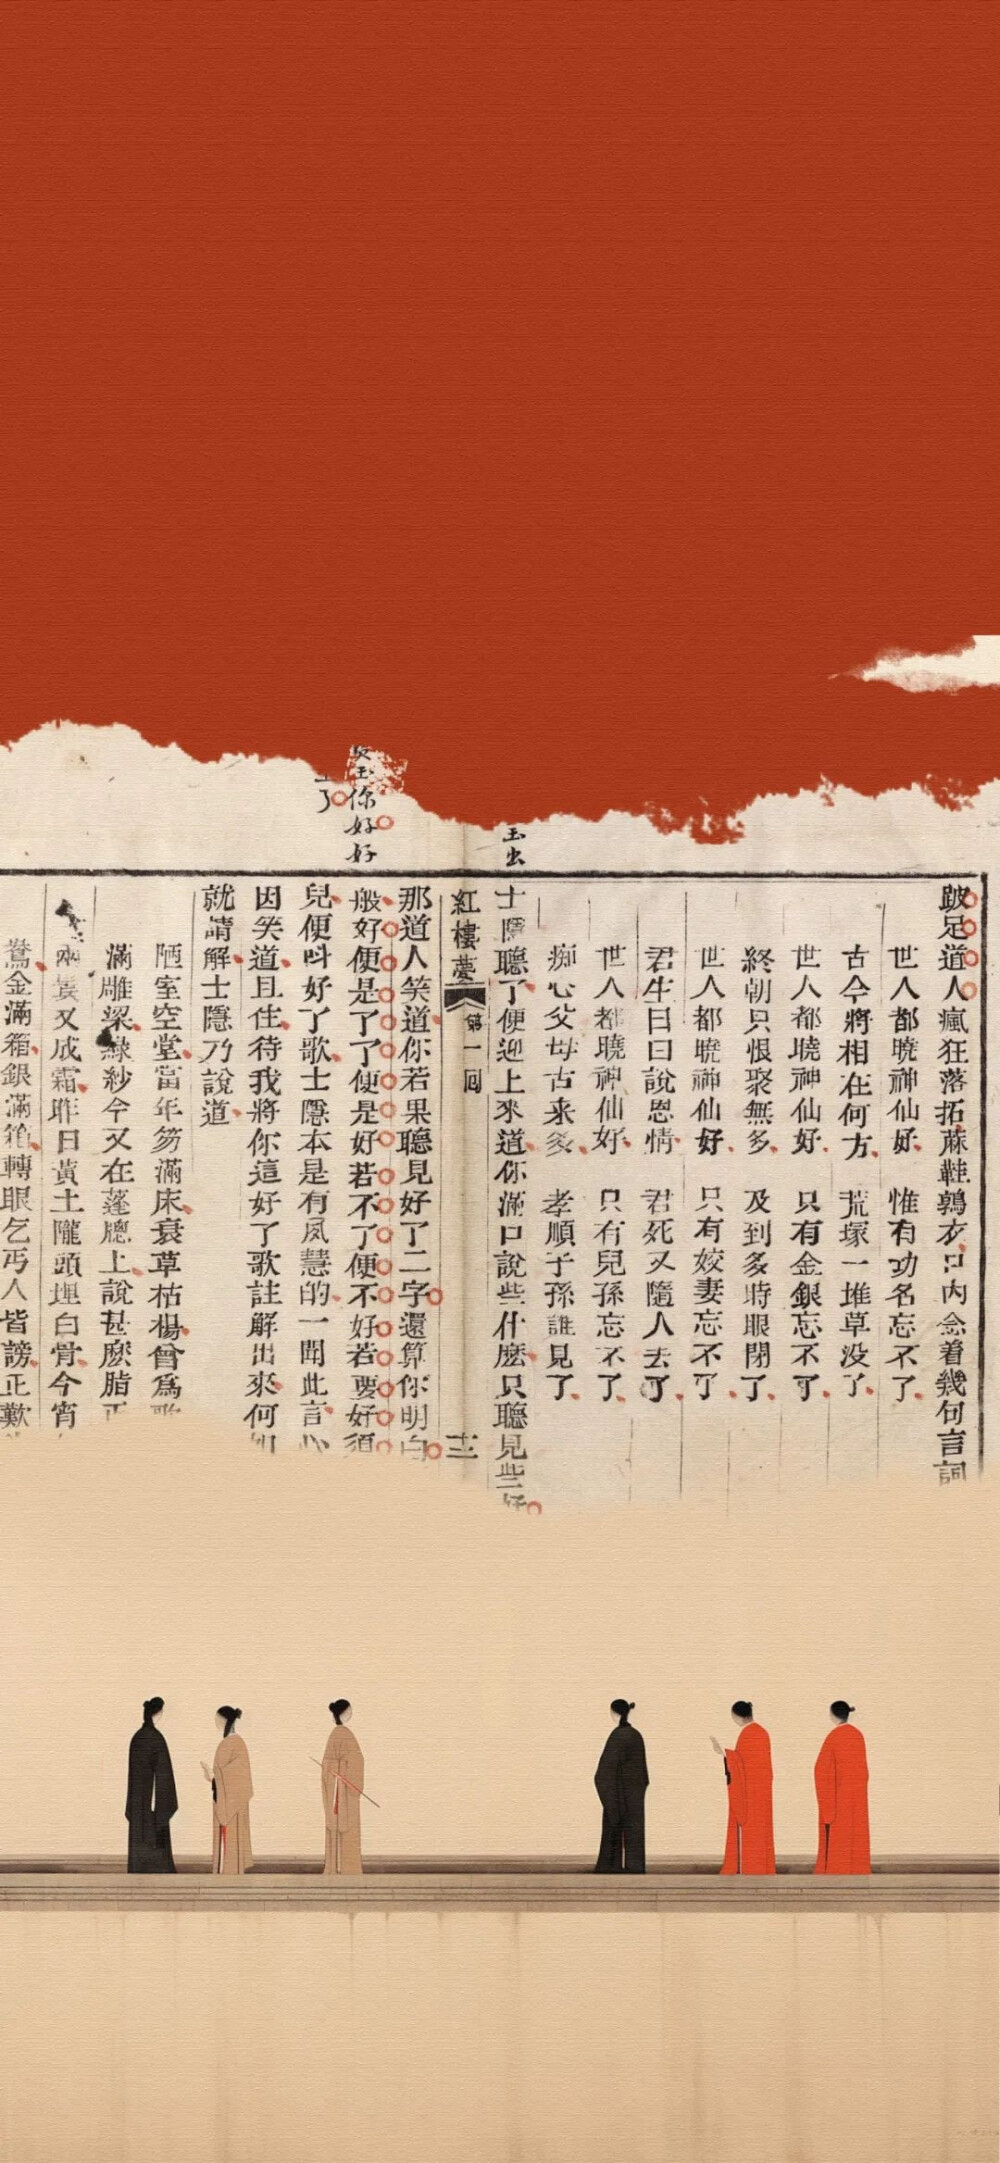 玉出
你好好
了
跛足道人瘋狂落拓蔴鞋鶉衣口内念着幾句言詞
世人都曉神仙好 惟有功名忘不了
古今將相在何方 荒塚一堆草没了
世人都曉神仙好 只有金銀忘不了
終朝只恨聚無多 及到多時眼閉了
世人都曉神仙好 只有姣妻忘不了
君生日日說恩情 君死又隨人去了
世人都曉神仙好 只有兒孫忘不了
痴心父母古来多 孝順子孫誰見了
士隱聽了便迎上來道你滿口說些什麽只聽見些好
紅樓夢 第一回 十三
那道人笑道你若果聽見好了二字還算你明白
般好便是了了便是好若不了便不好若要好須
兒便呌好了歌士隱本是有夙慧的一聞此言心
因笑道且住待我將你這好了歌註解出來何如
就請解士隱乃說道
陋室空堂當年笏滿床衰草枯楊曾爲歌
滿雕梁綠紗今又在蓬牕上說甚麽脂正
兩鬓又成霜昨日黃土隴頭埋白骨今宵
鴦金滿箱銀滿箱轉眼乞丐人皆謗正歎